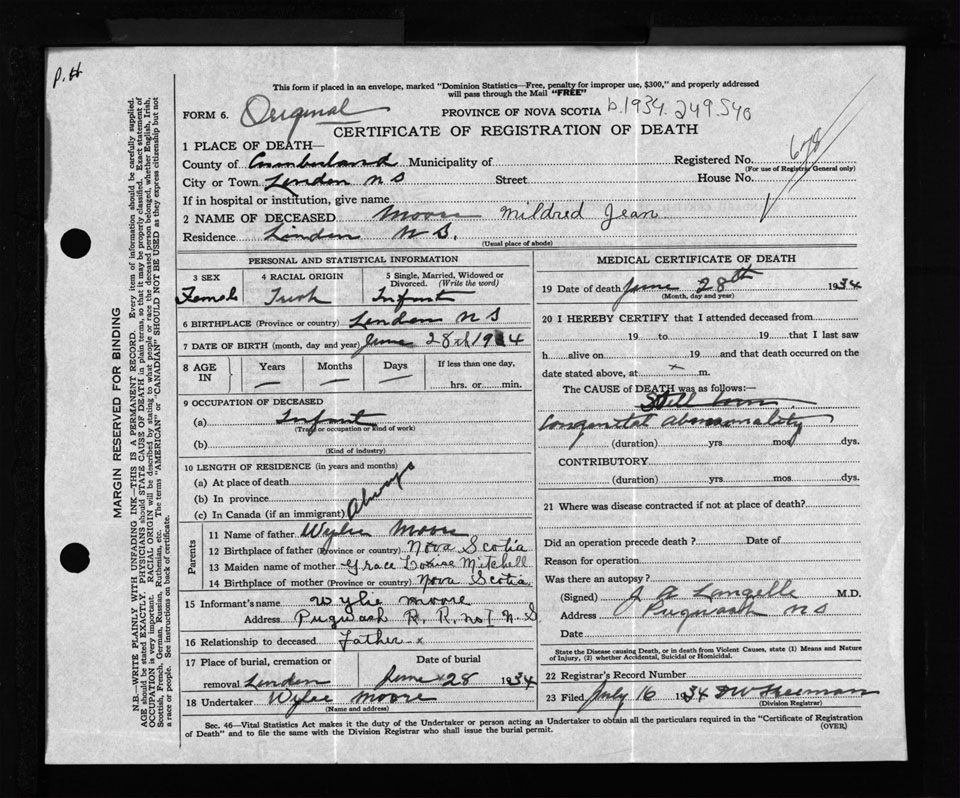 P.H
This form if placed in an envelope, marked "Dominion Statistics—Free, penalty for improper use, $300," and properly addressed
will pass through the Mail "FREE"
FORM 6. Original PROVINCE OF NOVA SCOTIA b.1934.249540
CERTIFICATE OF REGISTRATION OF DEATH
1 PLACE OF DEATH—
County of Cumberland Municipality of Registered No. 678
(For use of Registrar General only)
City or Town Linden N S Street House No.
If in hospital or institution, give name
2 NAME OF DECEASED Moore Mildred Jean
Residence Linden N S.
(Usual place of abode)
PERSONAL AND STATISTICAL INFORMATION
3 SEX 4 RACIAL ORIGIN 5 Single, Married, Widowed or
Divorced. (Write the word)
Female Irish Infant
6 BIRTHPLACE (Province or country) Linden N S
7 DATE OF BIRTH (month, day and year) June 28th 1934
8 AGE IN Years Months Days If less than one day,
— — — hrs. or min.
9 OCCUPATION OF DECEASED
(a) Infant
(Trade or occupation or kind of work)
(b)
(Kind of industry)
10 LENGTH OF RESIDENCE (in years and months)
(a) At place of death
(b) In province
(c) In Canada (if an immigrant) Always
Parents
11 Name of father Wylie Moore
12 Birthplace of father (Province or country) Nova Scotia
13 Maiden name of mother Grace Louise Mitchell
14 Birthplace of mother (Province or country) Nova Scotia
15 Informant's name Wylie Moore
Address Pugwash R. R. no 1 N. S
16 Relationship to deceased Father x
17 Place of burial, cremation or Date of burial
removal Linden June 28 1934
18 Undertaker Wylie Moore
(Name and address)
MEDICAL CERTIFICATE OF DEATH
19 Date of death June 28th 1934
(Month, day and year)
20 I HEREBY CERTIFY that I attended deceased from
19 to 19 that I last saw
h alive on 19 and that death occurred on the
date stated above, at x m.
The CAUSE of DEATH was as follows:—
Still born
Congenital abnormality
(duration) yrs. mos. dys.
CONTRIBUTORY
(duration) yrs. mos. dys.
21 Where was disease contracted if not at place of death?
Did an operation precede death? Date of
Reason for operation
Was there an autopsy?
(Signed) J A Langille M.D.
Address Pugwash N S
Date
State the Disease causing Death, or in death from Violent Causes, state (1) Means and Nature
of Injury, (2) whether Accidental, Suicidal or Homicidal.
22 Registrar's Record Number
23 Filed July 16 1934 Freeman
(Division Registrar)
Sec. 46—Vital Statistics Act makes it the duty of the Undertaker or person acting as Undertaker to obtain all the particulars required in the "Certificate of Registration
of Death" and to file the same with the Division Registrar who shall issue the burial permit. (OVER)
MARGIN RESERVED FOR BINDING
N.B.—WRITE PLAINLY WITH UNFADING INK—THIS IS A PERMANENT RECORD. Every item of information should be carefully supplied.
AGE should be stated EXACTLY. PHYSICIANS should STATE CAUSE OF DEATH in plain terms, so that it may be properly classified. Exact statement of
OCCUPATION is very important. RACIAL ORIGIN will be described by stating to what people or race the deceased person belonged, whether English, Irish,
Scottish, French, German, Russian, Ruthenian, etc. The terms "AMERICAN" or "CANADIAN" SHOULD NOT BE USED as they express citizenship but not
a race or people. See instructions on back of certificate.